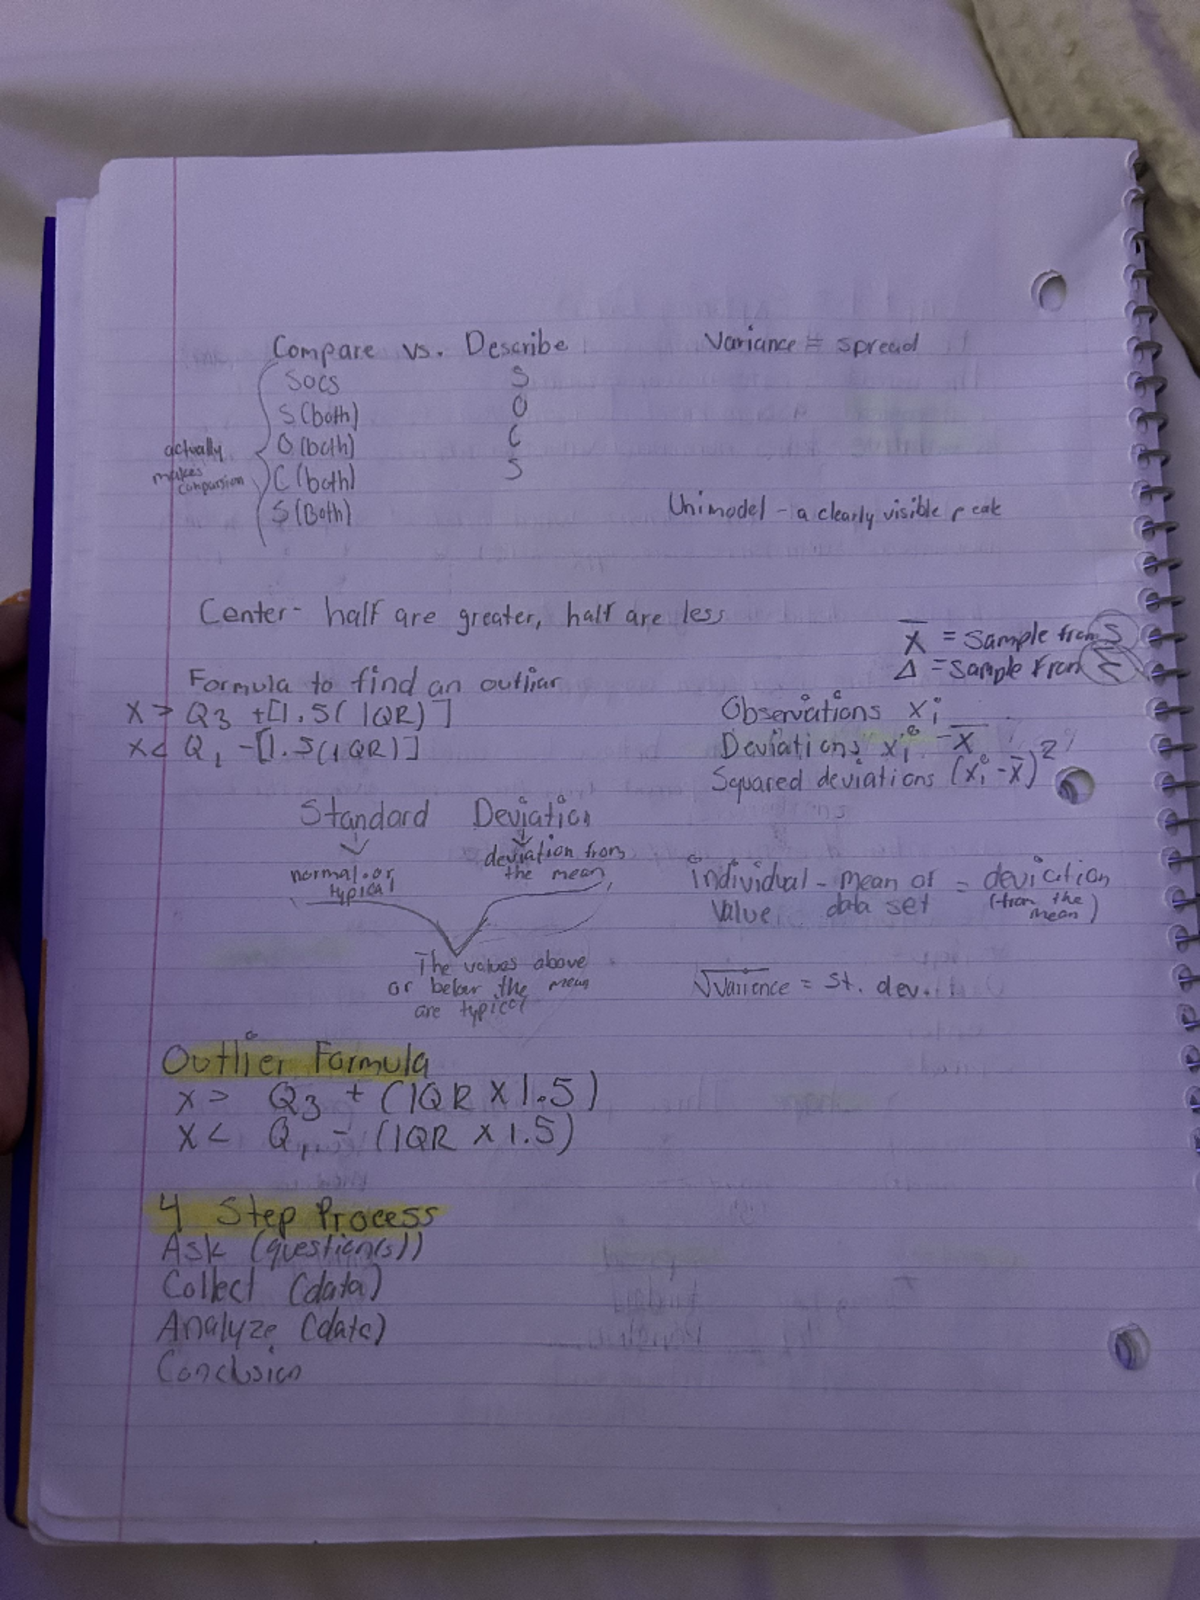 Compare vs. Describe
Socs S
S (both) O
O (both) C
C (both) S
S (Both)
actually
makes
comparsion
Variance = spread
Unimodel - a clearly visible peak
Center - half are greater, half are less
X̄ = Sample from S
= Sample From Σ
Formula to find an outliar
X > Q3 + [1.5( IQR)]
X < Q1 - [1.5(IQR)]
Observations xi
Deviations xi - x̄
Squared deviations (xi - x̄)²
Standard Deviation
normal or
typical
deviation from
the mean
The values above
or below the mean
are typical
individual - mean of = deviation
value data set (from the
mean)
√variance = St. dev.
Outlier Formula
X > Q3 + (IQR X 1.5)
X < Q1 - (IQR X 1.5)
4 Step Process
Ask (question(s))
Collect (data)
Analyze (data)
Conclusion